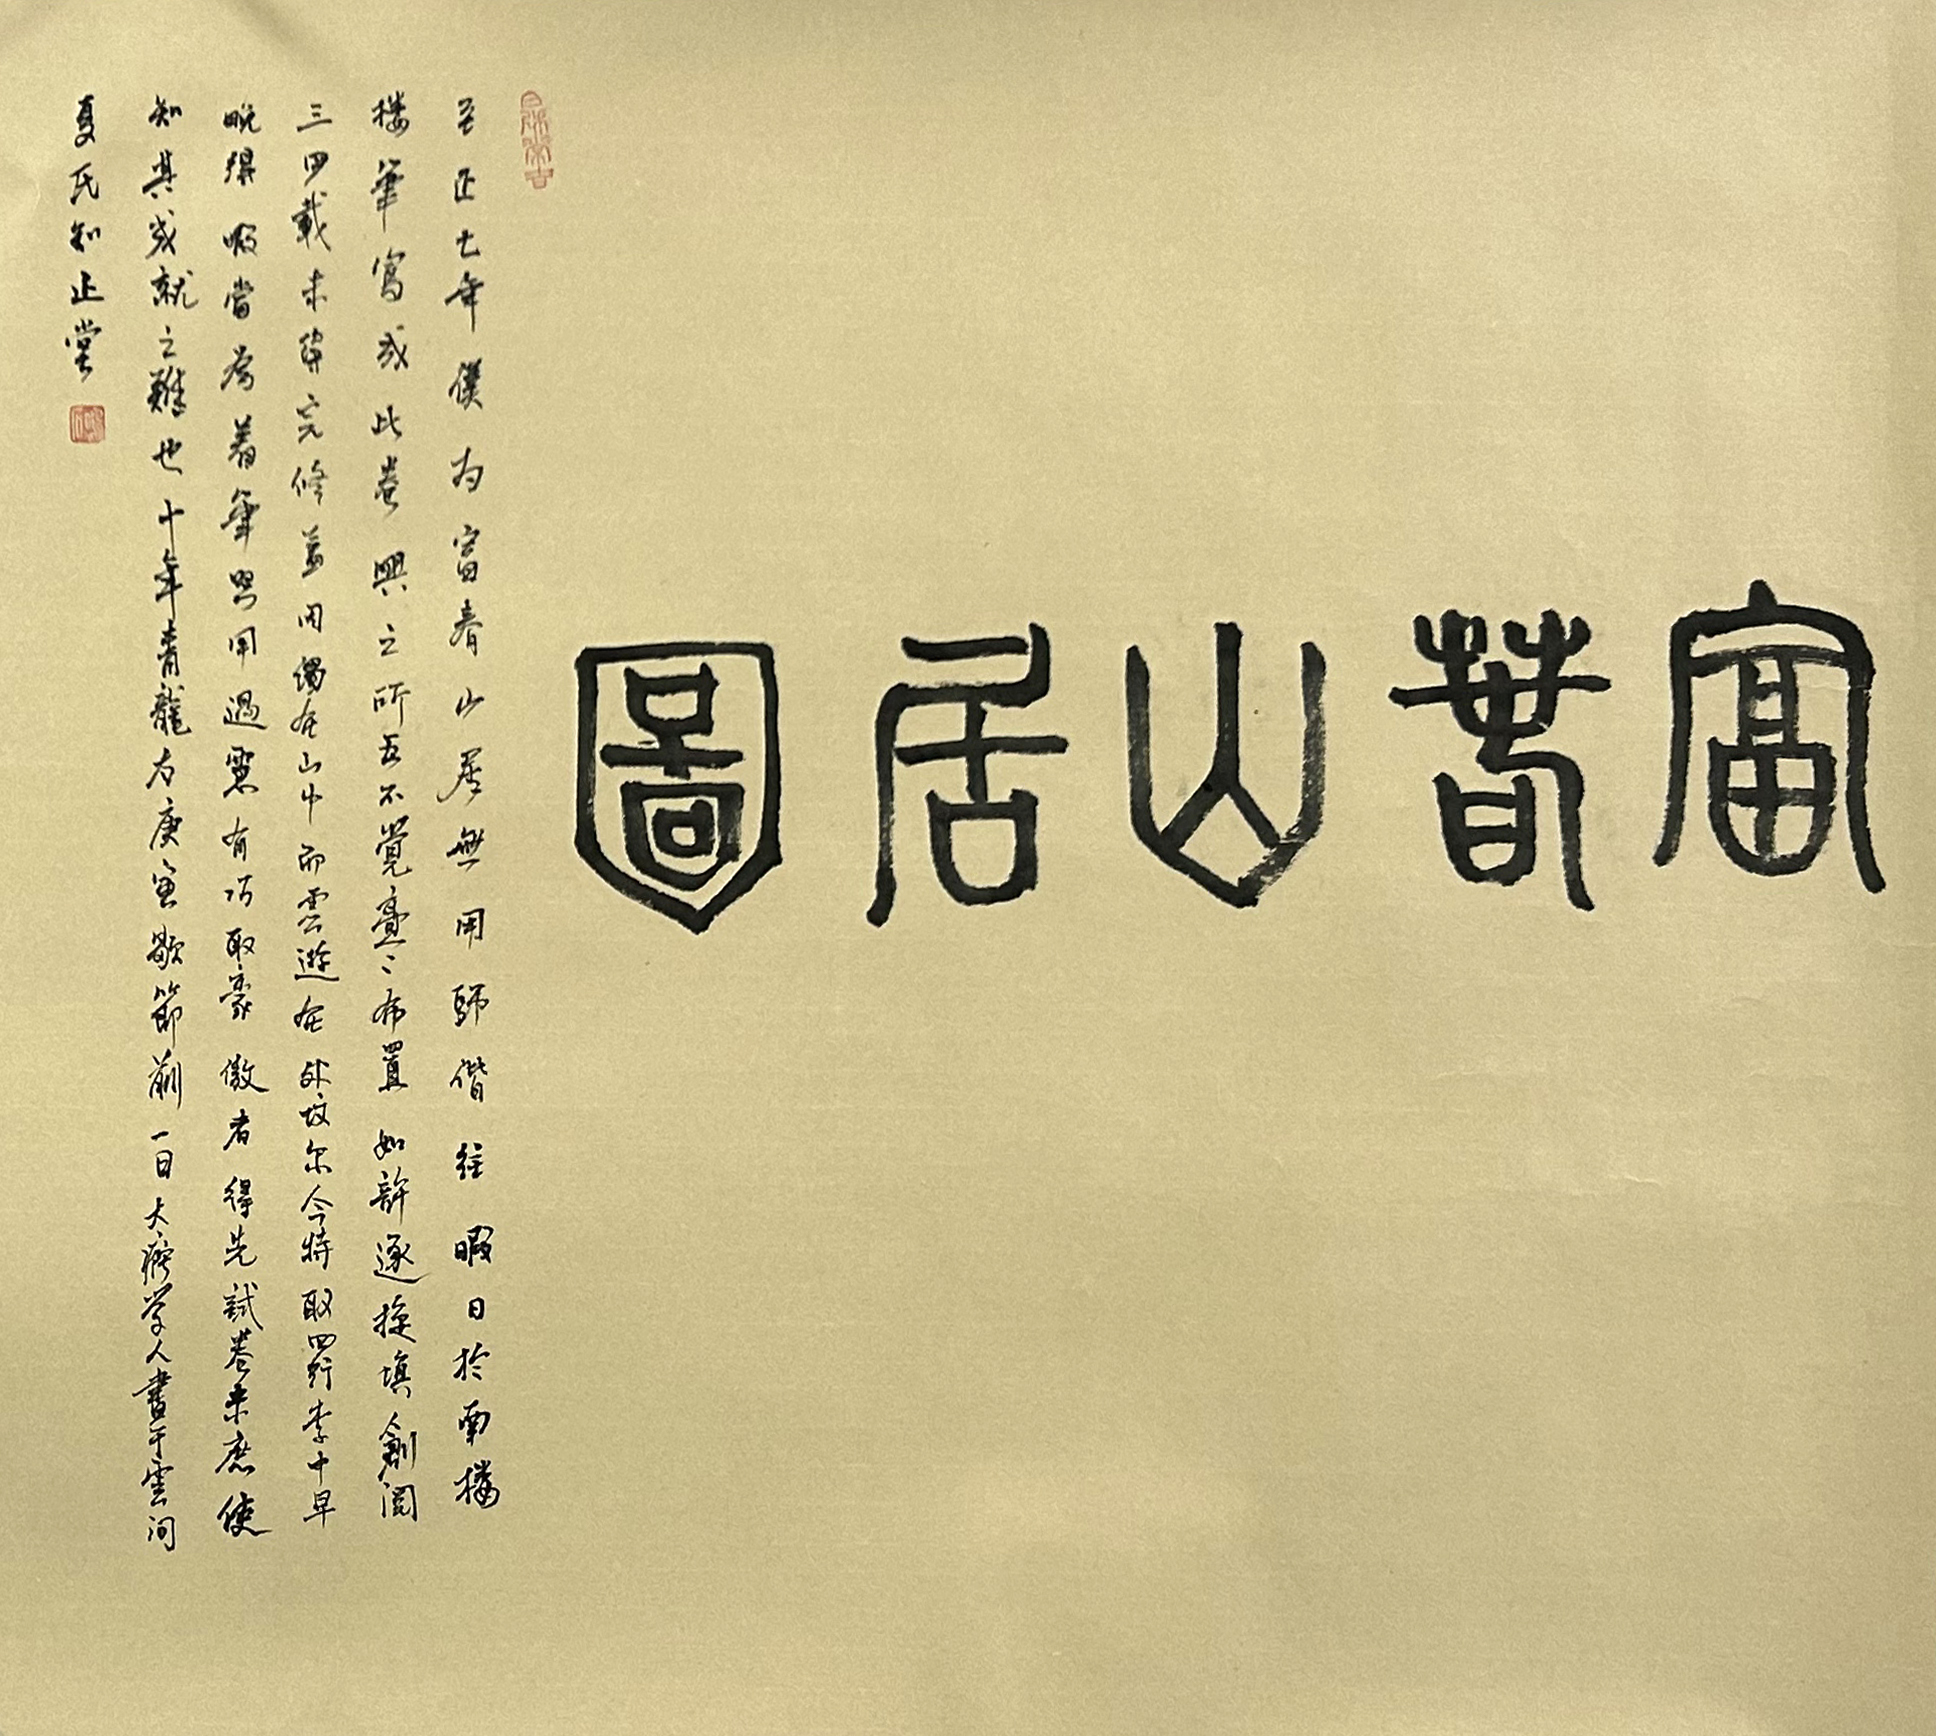 富春山居圖
至正七年僕為富春山居無用師偕往暇日於南樓
援筆寫成此卷興之所至不覺亹亹布置如許逐旋填劄閱
三四載未得完備蓋因留在山中而雲遊在外故尔今特取回行李中早
晚得暇當為着筆無用過慮有巧取豪敓者得先識卷末庶使
知其成就之難也十年青龍在庚寅歜節前一日大癡學人書于雲間
夏氏知止堂